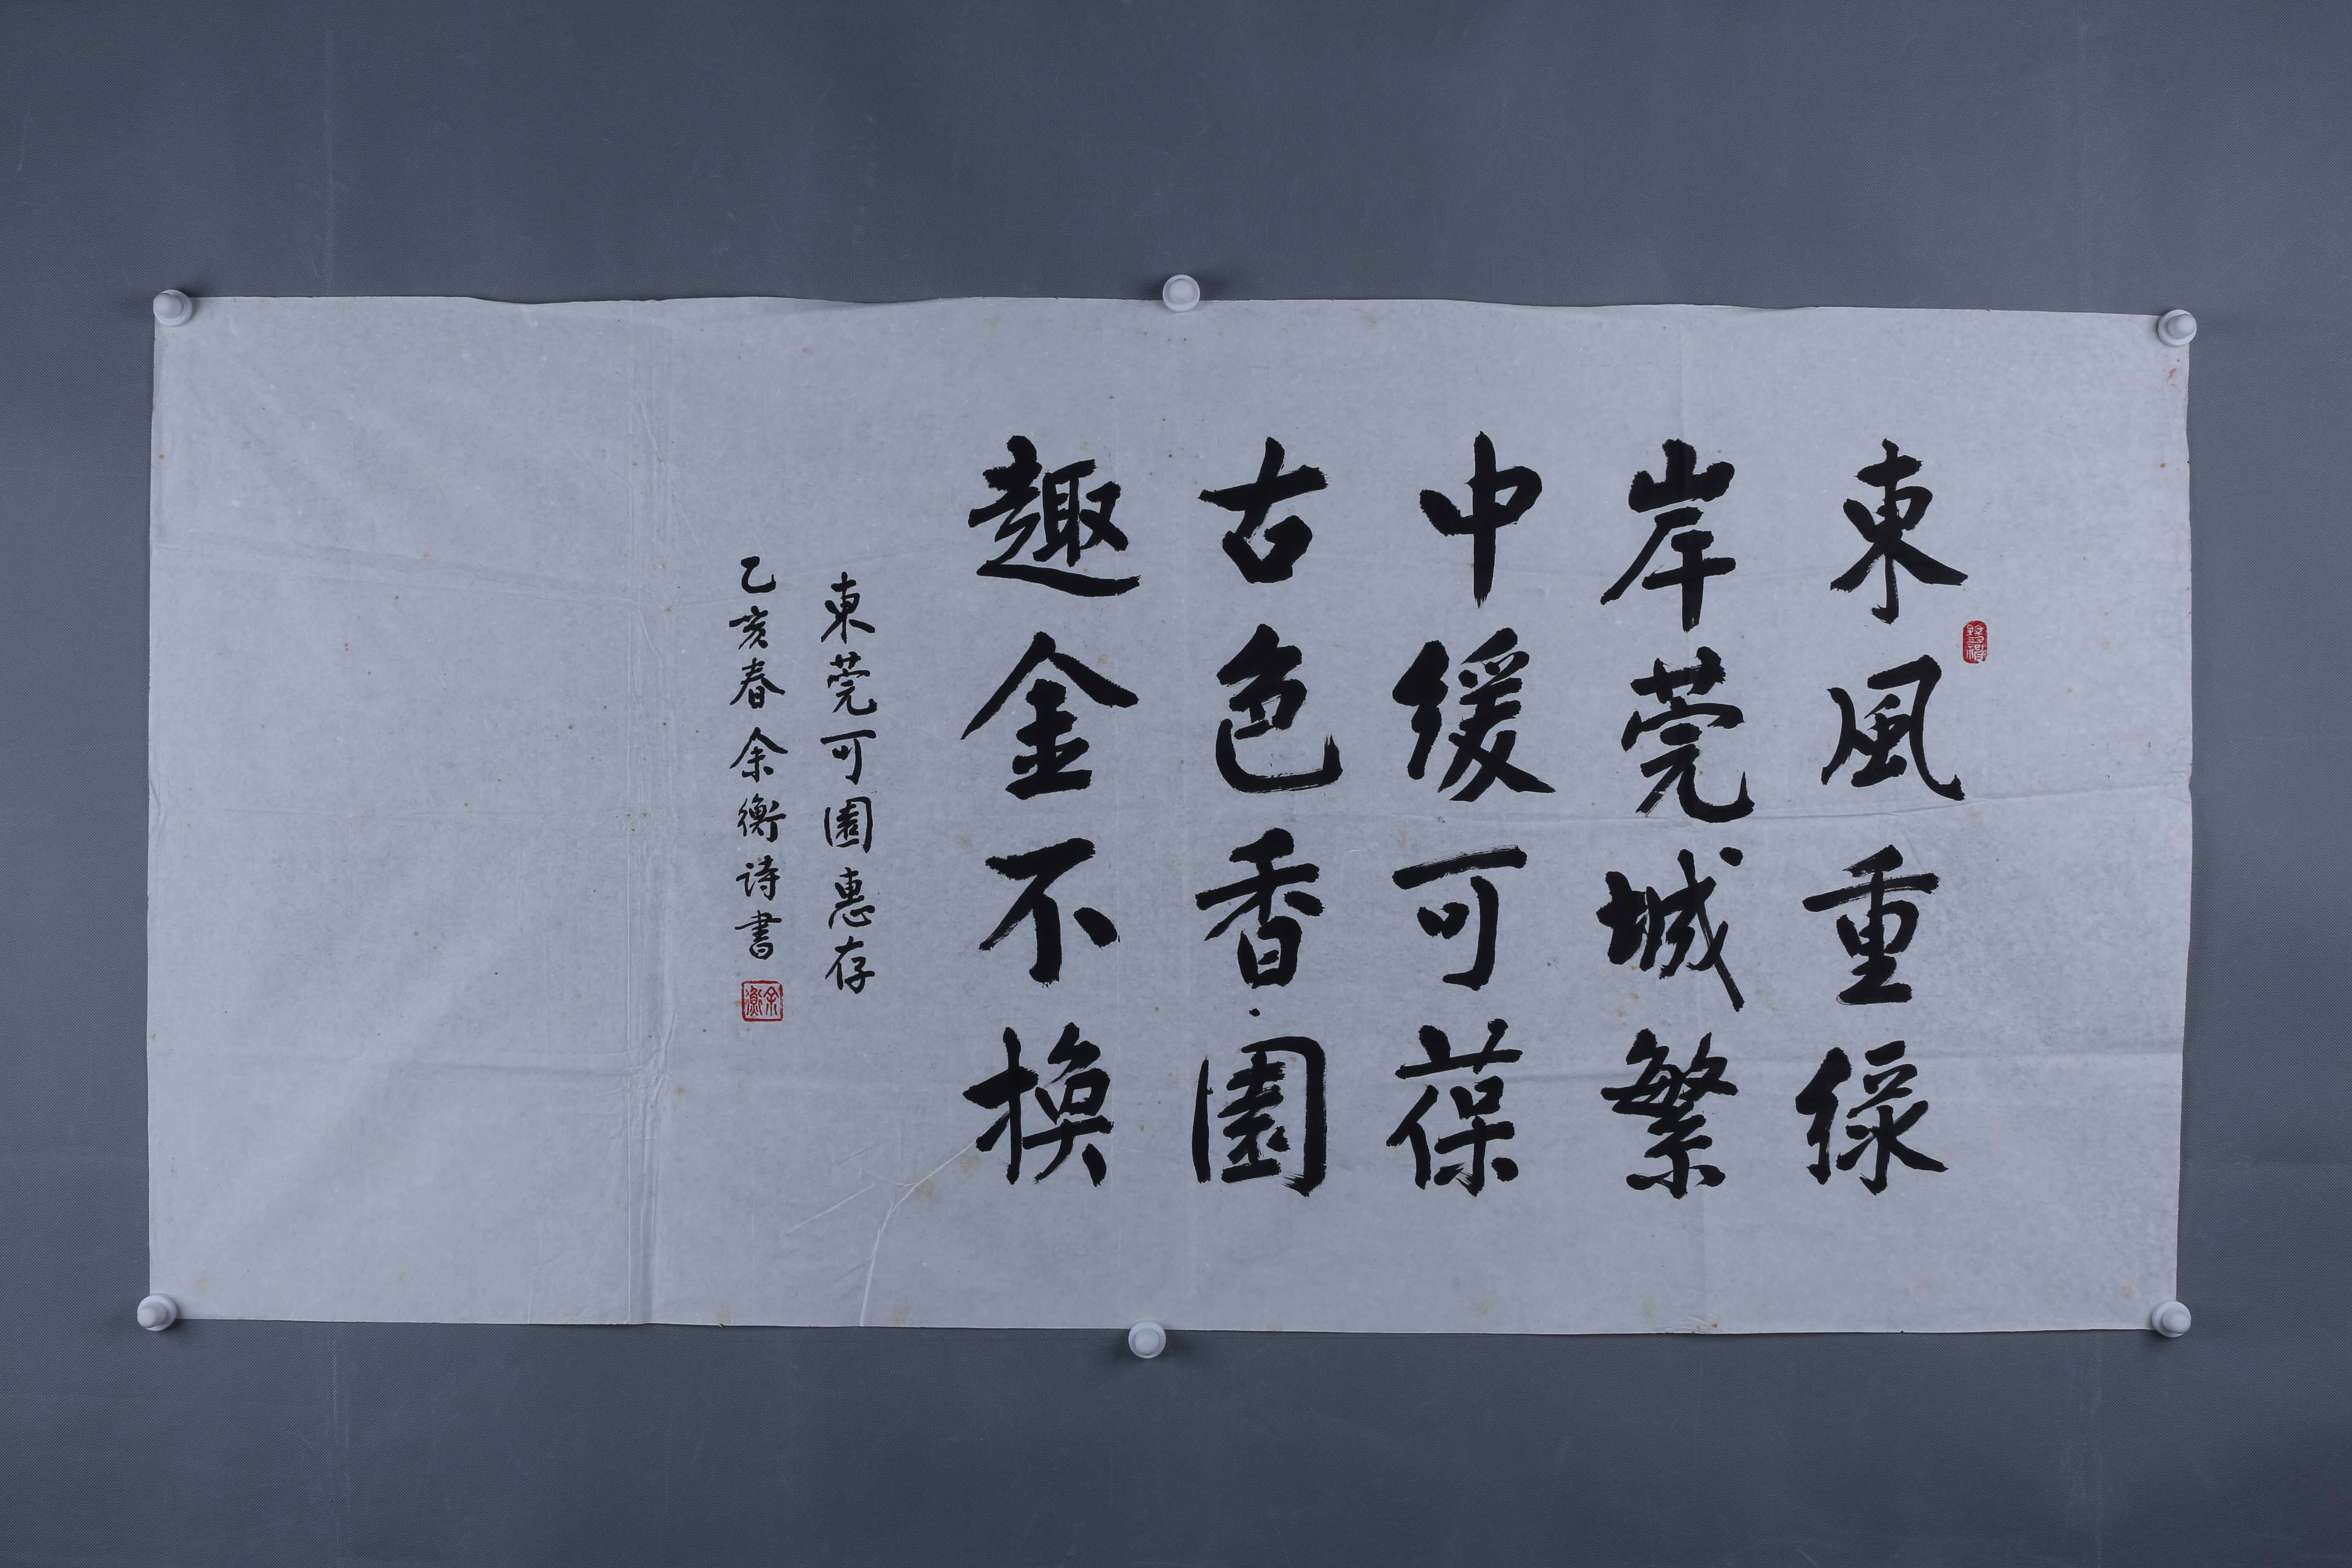 東風重綠
岸莞城繁
中緩可葆
古色香園
趣金不換
東莞可園惠存
乙亥春余衡詩書
余衡